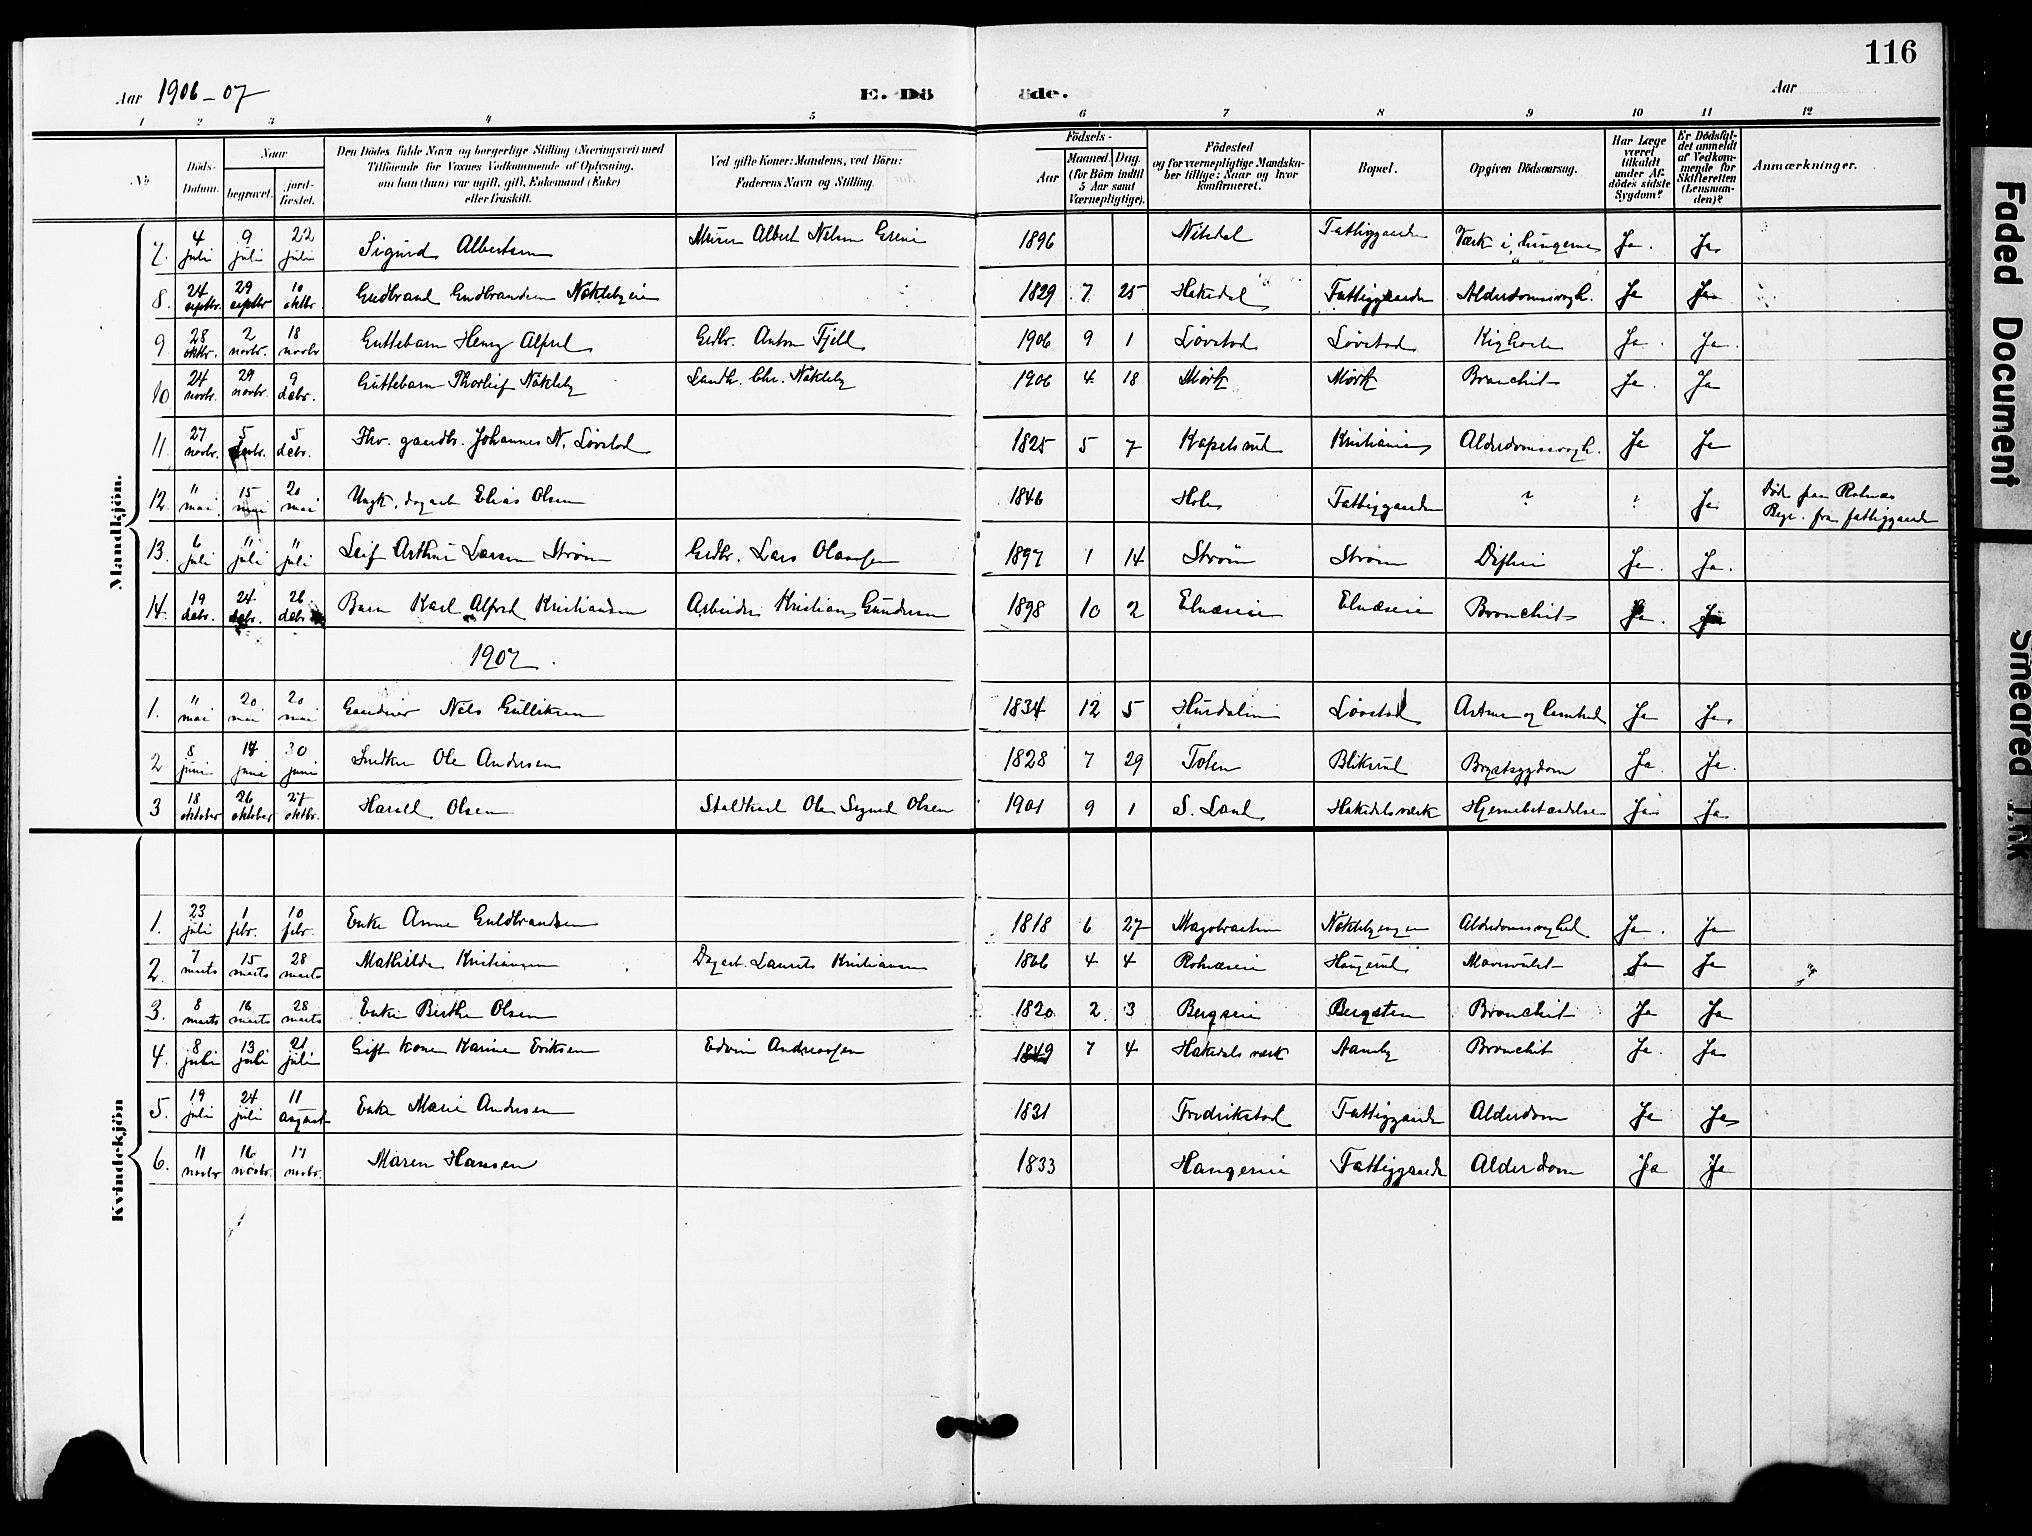 116
Aar 1906-07
E. Dö
öde.
Aar
1 2 3 4 5 6 7 8 9 10 11 12
No
Döds-Datum.
Naar
begravet.
jordfæstet.
Den Dödes fulde Navn og borgerlige Stilling (Næringsvei) med
Tilföiende for Voxnes Vedkommende af Oplysning,
om han (hun) var ugift, gift, Enkemand (Enke)
eller fraskilt.
Ved gifte Koner: Mandens, ved Börn:
Faderens Navn og Stilling.
Födsels-
Aar
Maaned. Dag.
(for Börn indtil
5 Aar samt
Værnepligtige).
Födested
og for værnepligtige Mandskaber tillige: Naar og hvor
konfirmeret.
Bopæl.
Opgiven Dödsaarsag.
Har Læge
været
tilkaldt
under Afdödes sidste
Sygdom?
Er Dödsfaldet anmeldt
af Vedkommende for
Skifteretten
(Lensmanden)?
Anmærkninger.
Mandkjön.
7. 4 juli 9 juli 22 juli Sigurd Albertsen Murer Albert Nilsen Greni 1896 Nitedal Fattiggaarden Værk i lungerne Ja. Ja
8. 24 septbr. 29 septbr 10 oktbr. Gudbrand Gudbrandsen Nökleby 1829 7 25 Hakedal Fattiggaarden Alderdomssvagh. Ja Ja
9 28 oktbr. 2 novbr. 18 novbr Guttebarn Henry Alfred Grdbr. Anton Fjeld 1906 9 1 Løvstad Løvstad Kighoste Ja. Ja.
10 24 novbr. 29 novbr. 9 debr. Guttebarn Thorleif Nökleby Landh. Chr. Nökleby 1906 4 18 Mørk Mørk Bronchit Ja. Ja
11. 27 novbr. 5 debr. 5 debr. Fhv. gaardbr. Johannes N. Løvstad 1825 5 7 Kapelsrud Kristiania Alderdomssvagh. Ja Ja
12. " mai 15 mai 20 mai Ungk. dagarb. Elias Olsen 1846 Hole Fattiggaarden ? ? Ja Død paa Rotnæs
Begr. fra fattiggaarden
13. 6 juli " juli " juli Leif Arthur Larsen Strøm Grdbr. Lars Olaussen 1897 1 14 Strøm Strøm Difteri Ja. Ja.
14. 19 debr. 24 debr. 26 debr Barn Karl Alfred Kristiansen Arbeider Kristian Gundersen 1898 10 2 Elnæseie Elnæseie Bronchit Ja. Ja
1907.
1. " mai 20 mai 20 mai Gaardeier Nils Gulliksen 1834 12 5 Hurdalen Løvstad Astma og Ja Ja
2 8 juni 14 juni 30 juni Snedker Ole Andersen 1828 7 29 Toten Bliksrud Brystsygdom Ja. Ja.
3 18 oktober 26 oktober 27 oktbr. Harald Olsen Staldkarl Ole Sigurd Olsen 1901 9 1 S. Land Hakedalsværk Hjernebetændelse Ja Ja
Kvindekjön
1. 23 juli 1 febr. 10 febr. Enke Anne Guldbrandsen 1818 6 27 Magobraaten Alderdomssvaghed Ja. Ja
2. 7 marts 15 marts 28 marts Mathilde Kristiansen Dagarb. Laurits Kristiansen 1866 4 4 Rotnæseie Haugerud Mavesvulst Ja Ja
3. 8 marts 16 marts 28 marts Enke Berthe Olsen 1820 2 3 Bergseie Bergsten Bronchit Ja Ja
4. 8 juli 13 juli 21 juli Gift kone Karine Eriksen Edvin Andreassen 1849 7 4 Hakedals værk Aamby Bronchit Ja. Ja
5. 19 juli 24 juli 11 august Enke Marie Andersen 1831 Fredrikstad Fattiggaarden Alderdom Ja Ja
6. 11 novbr 16 novbr. 17 novbr. Maren Hansen 1833 Haugerie Fattiggaarden Alderdom Ja Ja
Faded Document
Smeared Ink